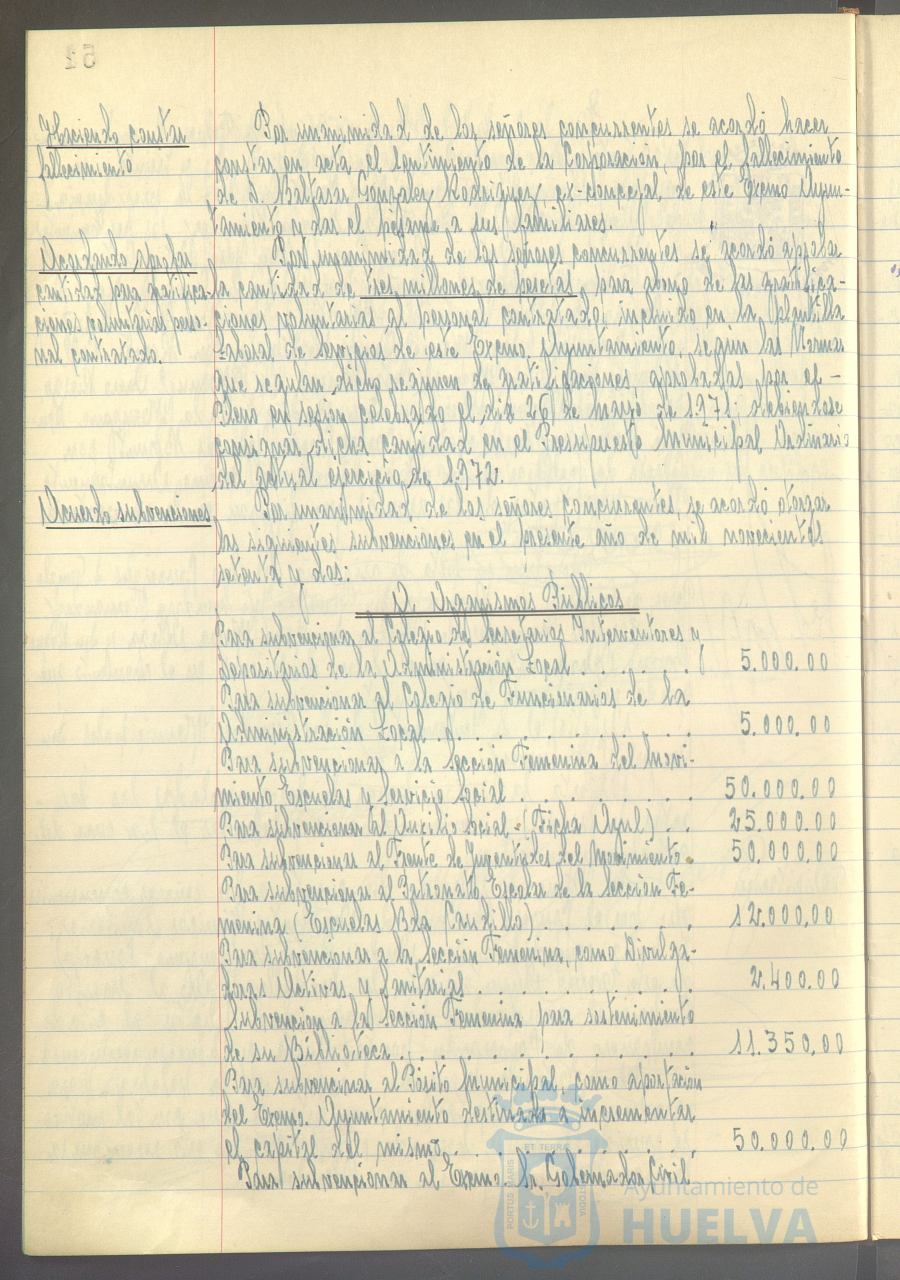 51
Haciendo constar
fallecimiento
Por unanimidad de los señores concurrentes se acordó hacer
constar en acta, el sentimiento de la Corporación, por el fallecimiento
de D. Baltasar González Rodríguez, ex-concejal de este Excmo Ayun-
tamiento y dar el pésame a sus familiares.
Acordando aprobar
cantidad para gratifica-
ciones voluntarias perso-
nal contratado.
Por unanimidad de los señores concurrentes se acordó aprobar
la cantidad de tres millones de pesetas, para abono de las gratifica-
ciones voluntarias al personal contratado, incluido en la Plantilla
Laboral de Servicios de este Excmo. Ayuntamiento, según las Normas
que regulan dicho regimen de gratificaciones, aprobadas por el -
Pleno en sesión celebrada el día 26 de mayo de 1.971; debiendose
consignar dicha cantidad en el Presupuesto Municipal Ordinario
del actual ejercicio de 1.972.
Acuerdo subvenciones
Por unanimidad de los señores concurrentes, se acordó otorgar
las siguientes subvenciones en el presente año de mil novecientos
setenta y dos:
A. Organismos Públicos
Para subvencionar al Colegio de Secretarios Interventores y
Depositarios de la Administración Local . . . . . . . 5.000.00
Para subvencionar al Colegio de Funcionarios de la
Administración Local . . . . . . . . . . 5.000.00
Para subvencionar a la Sección Femenina del Movi-
miento Escuelas y Servicio Social . . . . . . . 50.000.00
Para subvencionar al Auxilio Social - (Ficha Azul) . . 25.000.00
Para subvencionar al Frente de Juventudes del Movimiento . 50.000.00
Para subvencionar al Patronato Escolar de la Sección Fe-
menina (Escuelas Bda Caudillo) . . . . . . . 12.000,00
Para subvencionar a la Sección Femenina, como Divulga-
doras y Sanitarias . . . . . . . . 2.400.00
Subvención a la Sección Femenina para sostenimiento
de su Biblioteca . . . . . . . . . . 11.350,00
Para subvencionar al Pósito Municipal, como aportación
del Excmo. Ayuntamiento destinada a incrementar
el capital del mismo. . . . . . . . . 50.000.00
Para subvencionar al Excmo. Sr. Gobernador Civil
PORTUS MARIS ET TERRAE CUSTODIA
Ayuntamiento de
HUELVA